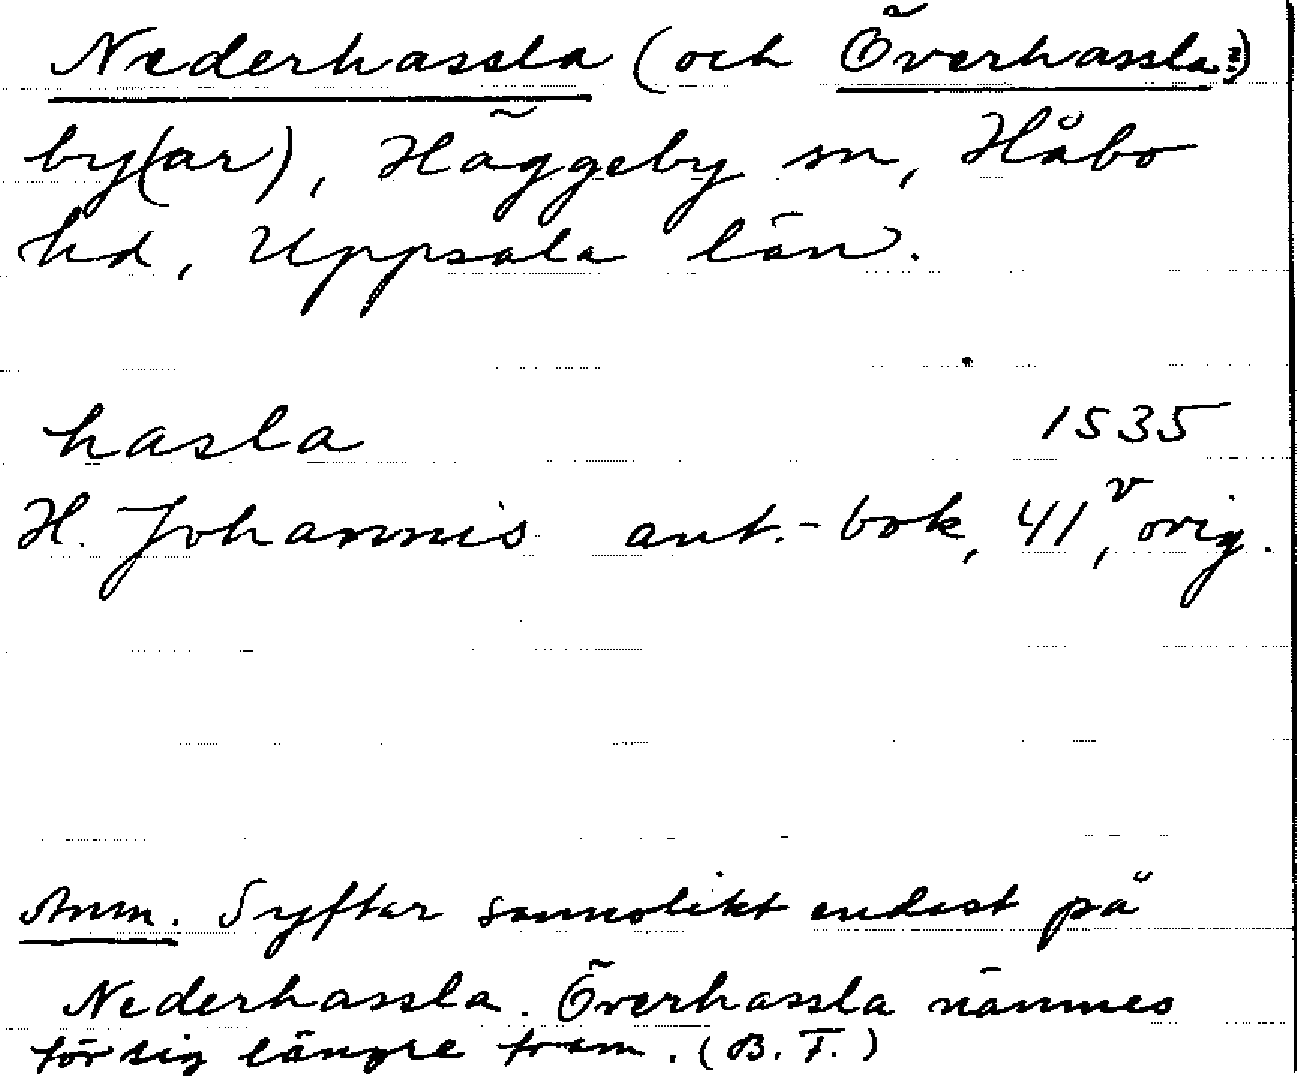 Nederhassla (och Överhassla?)
by(ar), Häggeby sn, Håbo
hd, Uppsala län.
hasla 1535
H. Johannis ant.-bok, 41v, orig.
Anm. Syftar sannolikt endast på
Nederhassla. Överhassla nämnes
för sig längre fram. (B. T.)